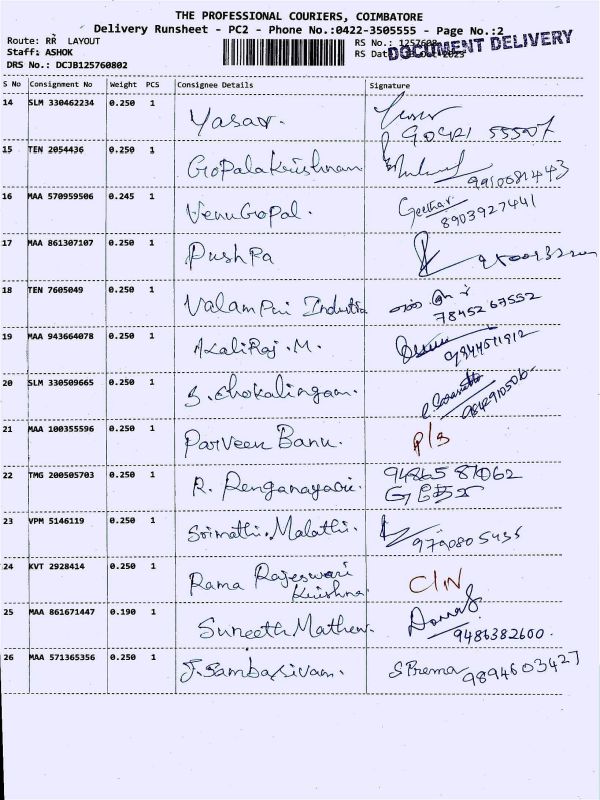 THE PROFESSIONAL COURIERS, COIMBATORE
Delivery Runsheet - PC2 - Phone No.:0422-3505555 - Page No.:2
Route: RR LAYOUT
RS No.:
Staff: ASHOK
RS Dat
DOCUMENT DELIVERY
DRS No.: DCJB125760802
S No Consignment No Weight PCS Consignee Details Signature
14 SLM 330462234 0.250 1 Yasar.
15 TEN 2054436 0.250 1 GoPalakrishnan 9910081443
16 MAA 570959506 0.245 1 VenuGoPal. Geetha 8903927441
17 MAA 861307107 0.250 1 PushPa
18 TEN 7605049 0.250 1 Valampuri Industria 7845267552
19 MAA 943664078 0.250 1 AkaliRaj.M. 9344511912
20 SLM 330509665 0.250 1 S. Chokalingam.
21 MAA 100355596 0.250 1 Parveen Banu. P/S
22 TMG 200505703 0.250 1 R. Renganayagi. 9486587062
23 VPM 5146119 0.250 1 Srimathi.Malathi. 9790805435
24 KVT 2928414 0.250 1 Rama Rajeswari Krishna C/N
25 MAA 861671447 0.190 1 Suneeth Mathew. 9486382600.
26 MAA 571365356 0.250 1 J.Sambasivam. S Prema 9894603427